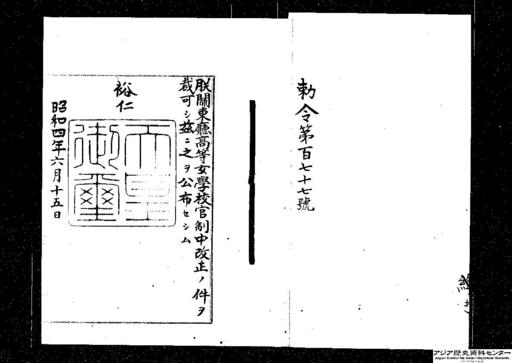 勅令第百七十七號
朕關東廳高等女學校官制中改正ノ件ヲ
裁可シ茲ニ之ヲ公布セシム
裕仁
天皇
御璽
昭和四年六月十五日
アジア歴史資料センター
Japan Center for Asian Historical Records